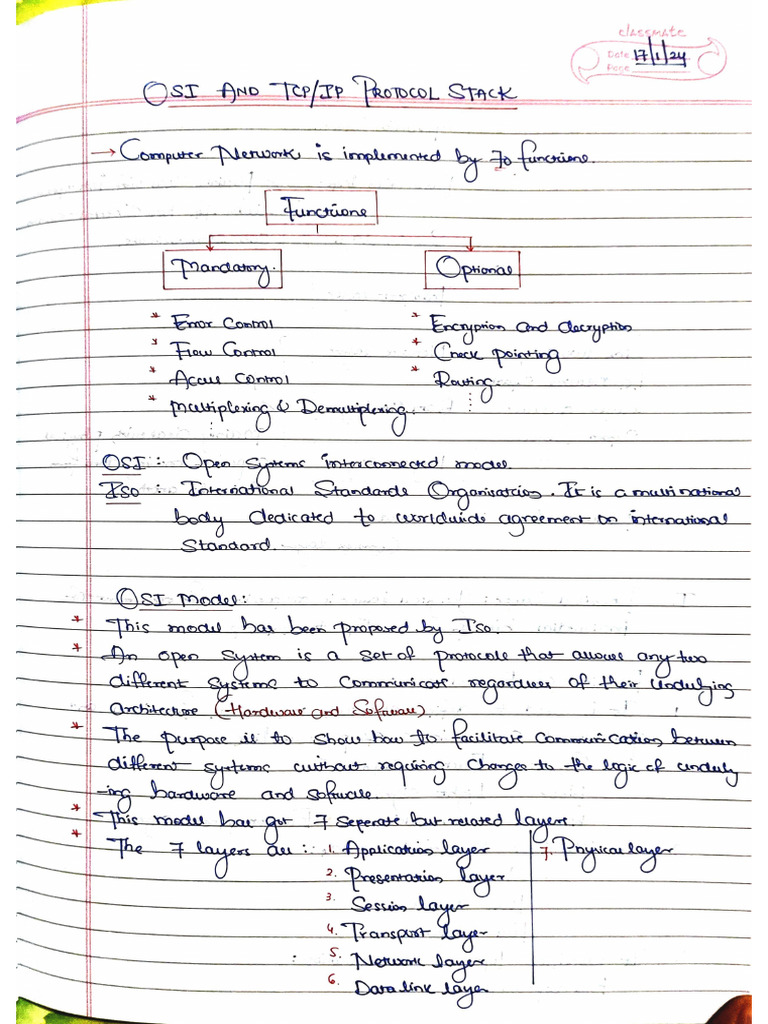 classmate
Date 17/1/24
Page
OSI AND TCP/IP PROTOCOL STACK
→ Computer Network is implemented by 70 functions.
Functions
Mandatory. Optional
* Error Control * Encryption and decryption
* Flow Control * Check pointing
* Access Control * Routing
* Multiplexing & Demultiplexing.
OSI : Open Systems interconnected model.
ISO : International Standards Organisation. It is a multinational
body dedicated to worldwide agreement on international
Standard.
OSI Model:
* This model has been proposed by ISO.
* An open System is a set of protocols that allows any two
different systems to communicate regardless of their underlying
architecture (Hardware and Software).
* The purpose is to show how to facilitate communication between
different systems without requiring changes to the logic of underly
-ing hardware and software.
* This model has got 7 seperate but related layers.
* The 7 layers are : 1. Application layer 7. Physical layer
2. Presentation layer
3. Session layer
4. Transport layer
5. Network layer
6. Data link layer